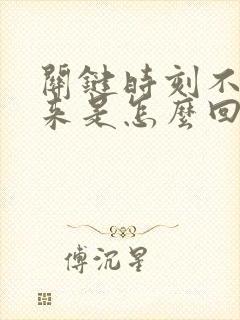 關鍵時刻不
來是怎麼回
傅沉星